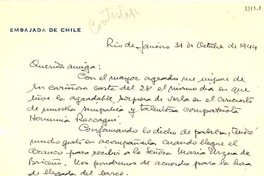 8813.1
Contestada
EMBAJADA DE CHILE
Rio de Janeiro 31 de Octubre de 1944
Querida amiga:
Con el mayor agrado me impuse de
su cariñosa carta del 28 el mismo día en que
tuve la agradable sorpresa de verla en el concierto
de nuestra simpática y talentosa compatriota
Herminia Raccagni.
Confirmando lo dicho de palabra, tendré
mucho gusto en acompañarla cuando llegue el
Arauco para recibir a la Señora María Urzúa de
Briceño. Nos pondremos de acuerdo para la hora
de llegada del barco.